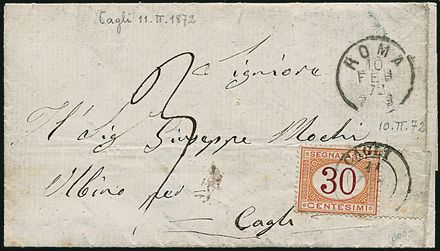 Cagli 11.II.1872
ROMA
10
FEB
72
3
Signore
Il Sig Giuseppe Mochi
10.II.72
Urbino per
Cagli
CAGLI
SEGNATASSE
30
CENTESIMI